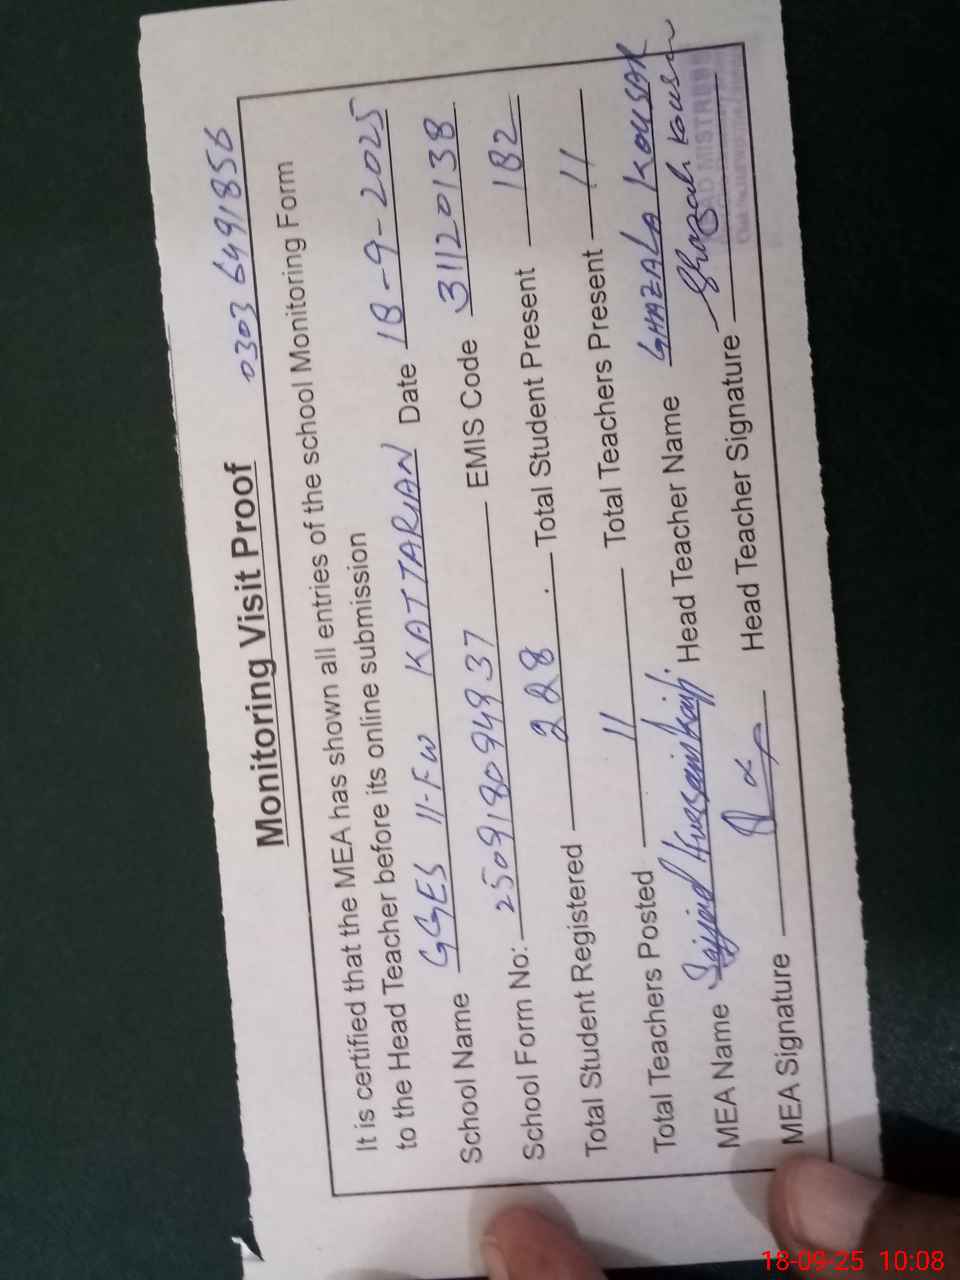 0303 6491856
Monitoring Visit Proof
It is certified that the MEA has shown all entries of the school Monitoring Form
to the Head Teacher before its online submission
School Name GGES 11-FW KATTARIAN Date 18-9-2025
School Form No: 250918094937 EMIS Code 31120138
Total Student Registered 228 . Total Student Present 182
Total Teachers Posted 11 Total Teachers Present 11
MEA Name Sajjad Hussain Head Teacher Name GHAZALA KOUSAR
MEA Signature Head Teacher Signature Ghazala Kousar
18-09-25 10:08